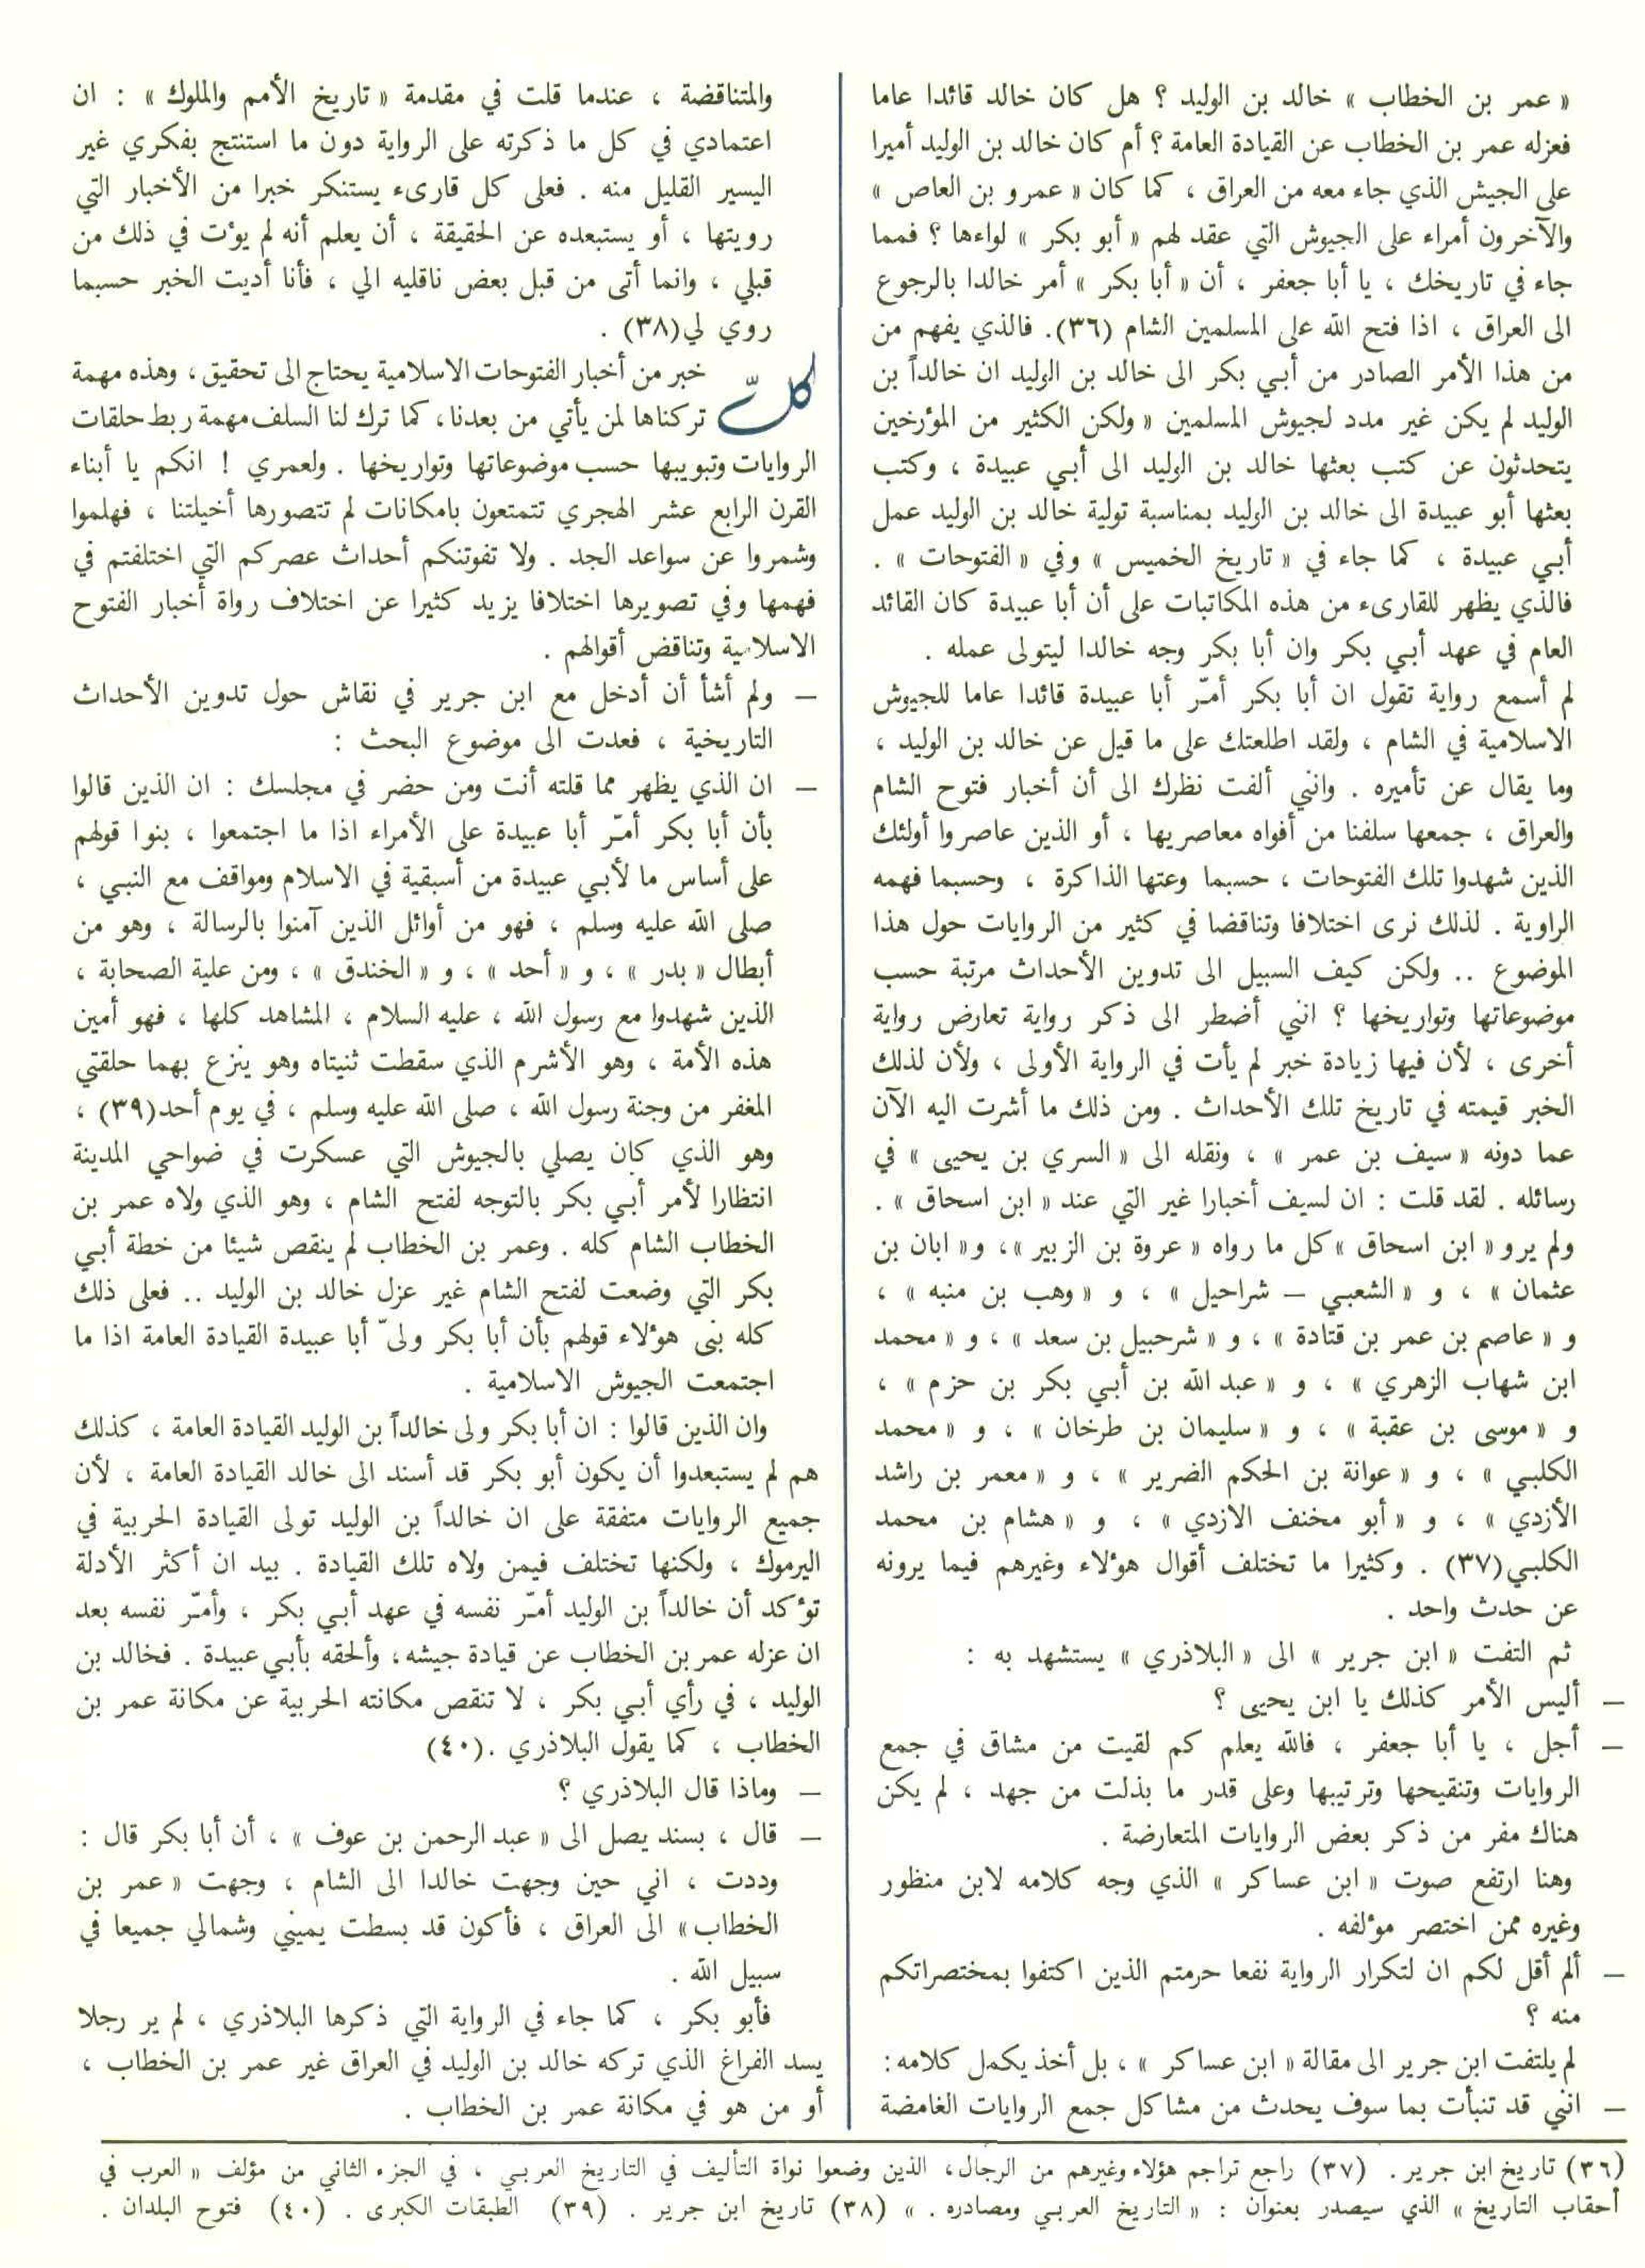 « عمر بن الخطاب » خالد بن الوليد ؟ هل كان خالد قائدا عاما
فعزله عمر بن الخطاب عن القيادة العامة ؟ أم كان خالد بن الوليد أميرا
على الجيش الذي جاء معه من العراق ، كما كان « عمرو بن العاص »
والآخرون أمراء على الجيوش التي عقد لهم « أبو بكر » لواءها ؟ فمما
جاء في تاريخك ، يا أبا جعفر ، أن « أبا بكر » أمر خالدا بالرجوع
الى العراق ، اذا فتح الله على المسلمين الشام (٣٦). فالذي يفهم من
من هذا الأمر الصادر من أبي بكر الى خالد بن الوليد ان خالداً بن
الوليد لم يكن غير مدد لجيوش المسلمين « ولكن الكثير من المؤرخين
يتحدثون عن كتب بعثها خالد بن الوليد الى أبي عبيدة ، وكتب
بعثها أبو عبيدة الى خالد بن الوليد بمناسبة تولية خالد بن الوليد عمل
أبي عبيدة ، كما جاء في « تاريخ الخميس » وفي « الفتوحات » .
فالذي يظهر للقارىء من هذه المكاتبات على أن أبا عبيدة كان القائد
العام في عهد أبي بكر وان أبا بكر وجه خالدا ليتولى عمله .
لم أسمع رواية تقول ان أبا بكر أمّر أبا عبيدة قائدا عاما للجيوش
الاسلامية في الشام ، ولقد اطلعتك على ما قيل عن خالد بن الوليد ،
وما يقال عن تأميره . وانني ألفت نظرك الى أن أخبار فتوح الشام
والعراق ، جمعها سلفنا من أفواه معاصريها ، أو الذين عاصروا أولئك
الذين شهدوا تلك الفتوحات ، حسبما وعتها الذاكرة ، وحسبما فهمه
الراوية . لذلك نرى اختلافا وتناقضا في كثير من الروايات حول هذا
الموضوع .. ولكن كيف السبيل الى تدوين الأحداث مرتبة حسب
موضوعاتها وتواريخها ؟ انني أضطر الى ذكر رواية تعارض رواية
أخرى ، لأن فيها زيادة خبر لم يأت في الرواية الأولى ، ولأن لذلك
الخبر قيمته في تاريخ تلك الأحداث . ومن ذلك ما أشرت اليه الآن
عما دونه « سيف بن عمر » ، ونقله الى « السري بن يحيى » في
رسائله . لقد قلت : ان لسيف أخبارا غير التي عند « ابن اسحاق » .
ولم يرو « ابن اسحاق » كل ما رواه « عروة بن الزبير » ، و« ابان بن
عثمان » ، و « الشعبي — شراحيل » ، و « وهب بن منبه » ،
و « عاصم بن عمر بن قتادة » ، و « شرحبيل بن سعد » ، و « محمد
ابن شهاب الزهري » ، و « عبد الله بن أبي بكر بن حزم » ،
و « موسى بن عقبة » ، و « سليمان بن طرخان » ، و « محمد
الكلبي » ، و « عوانة بن الحكم الضرير » ، و « معمر بن راشد
الأزدي » ، و « أبو مخنف الازدي » ، و « هشام بن محمد
الكلبي(٣٧) . وكثيرا ما تختلف أقوال هؤلاء وغيرهم فيما يرونه
عن حدث واحد .
ثم التفت « ابن جرير » الى « البلاذري » يستشهد به :
— أليس الأمر كذلك يا ابن يحيى ؟
— أجل ، يا أبا جعفر ، فالله يعلم كم لقيت من مشاق في جمع
الروايات وتنقيحها وترتيبها وعلى قدر ما بذلت من جهد ، لم يكن
هناك مفر من ذكر بعض الروايات المتعارضة .
وهنا ارتفع صوت « ابن عساكر » الذي وجه كلامه لابن منظور
وغيره ممن اختصر مؤلفه .
— ألم أقل لكم ان لتكرار الرواية نفعا حرمتم الذين اكتفوا بمختصراتكم
منه ؟
لم يلتفت ابن جرير الى مقالة « ابن عساكر » ، بل أخذ يكمل كلامه :
— انني قد تنبأت بما سوف يحدث من مشاكل جمع الروايات الغامضة
والمتناقضة ، عندما قلت في مقدمة « تاريخ الأمم والملوك » : ان
اعتمادي في كل ما ذكرته على الرواية دون ما استنتج بفكري غير
اليسير القليل منه . فعلى كل قارىء يستنكر خبرا من الأخبار التي
رويتها ، أو يستبعده عن الحقيقة ، أن يعلم أنه لم يؤت في ذلك من
قبلي ، وانما أتى من قبل بعض ناقليه الي ، فأنا أديت الخبر حسبما
روي لي(٣٨) .
كلّ خبر من أخبار الفتوحات الاسلامية يحتاج الى تحقيق ، وهذه مهمة
تركناها لمن يأتي من بعدنا، كما ترك لنا السلف مهمة ربط حلقات
الروايات وتبويبها حسب موضوعاتها وتواريخها . ولعمري ! انكم يا أبناء
القرن الرابع عشر الهجري تتمتعون بامكانات لم تتصورها أخيلتنا ، فهلموا
وشمروا عن سواعد الجد . ولا تفوتنكم أحداث عصركم التي اختلفتم في
فهمها وفي تصويرها اختلافا يزيد كثيرا عن اختلاف رواة أخبار الفتوح
الاسلامية وتناقض أقوالهم .
— ولم أشأ أن أدخل مع ابن جرير في نقاش حول تدوين الأحداث
التاريخية ، فعدت الى موضوع البحث :
— ان الذي يظهر مما قلته أنت ومن حضر في مجلسك : ان الذين قالوا
بأن أبا بكر أمّر أبا عبيدة على الأمراء اذا ما اجتمعوا ، بنوا قولهم
على أساس ما لأبي عبيدة من أسبقية في الاسلام ومواقف مع النبي ،
صلى الله عليه وسلم ، فهو من أوائل الذين آمنوا بالرسالة ، وهو من
أبطال « بدر » ، و « أحد » ، و « الخندق » ، ومن علية الصحابة ،
الذين شهدوا مع رسول الله ، عليه السلام ، المشاهد كلها ، فهو أمين
هذه الأمة ، وهو الأشرم الذي سقطت ثنيتاه وهو ينزع بهما حلقتي
المغفر من وجنة رسول الله ، صلى الله عليه وسلم ، في يوم أحد(٣٩) ،
وهو الذي كان يصلي بالجيوش التي عسكرت في ضواحي المدينة
انتظارا لأمر أبي بكر بالتوجه لفتح الشام ، وهو الذي ولاه عمر بن
الخطاب الشام كله . وعمر بن الخطاب لم ينقص شيئا من خطة أبي
بكر التي وضعت لفتح الشام غير عزل خالد بن الوليد .. فعلى ذلك
كله بنى هؤلاء قولهم بأن أبا بكر ولىّ أبا عبيدة القيادة العامة اذا ما
اجتمعت الجيوش الاسلامية .
وان الذين قالوا : ان أبا بكر ولى خالداً بن الوليد القيادة العامة ، كذلك
هم لم يستبعدوا أن يكون أبو بكر قد أسند الى خالد القيادة العامة ، لأن
جميع الروايات متفقة على ان خالداً بن الوليد تولى القيادة الحربية في
اليرموك ، ولكنها تختلف فيمن ولاه تلك القيادة . بيد ان أكثر الأدلة
تؤكد أن خالداً بن الوليد أمّر نفسه في عهد أبي بكر ، وأمّر نفسه بعد
ان عزله عمر بن الخطاب عن قيادة جيشه ، وألحقه بأبي عبيدة . فخالد بن
الوليد ، في رأي أبي بكر ، لا تنقص مكانته الحربية عن مكانة عمر بن
الخطاب ، كما يقول البلاذري .(٤٠)
— وماذا قال البلاذري ؟
— قال ، بسند يصل الى « عبد الرحمن بن عوف » ، أن أبا بكر قال :
وددت ، اني حين وجهت خالدا الى الشام ، وجهت « عمر بن
الخطاب » الى العراق ، فأكون قد بسطت يميني وشمالي جميعا في
سبيل الله .
فأبو بكر ، كما جاء في الرواية التي ذكرها البلاذري ، لم ير رجلا
يسد الفراغ الذي تركه خالد بن الوليد في العراق غير عمر بن الخطاب ،
أو من هو في مكانة عمر بن الخطاب .
(٣٦) تاريخ ابن جرير . (٣٧) راجع تراجم هؤلاء وغيرهم من الرجال، الذين وضعوا نواة التأليف في التاريخ العربي ، في الجزء الثاني من مؤلف « العرب في
أحقاب التاريخ » الذي سيصدر بعنوان : « التاريخ العربي ومصادره . » (٣٨) تاريخ ابن جرير . (٣٩) الطبقات الكبرى . (٤٠) فتوح البلدان .